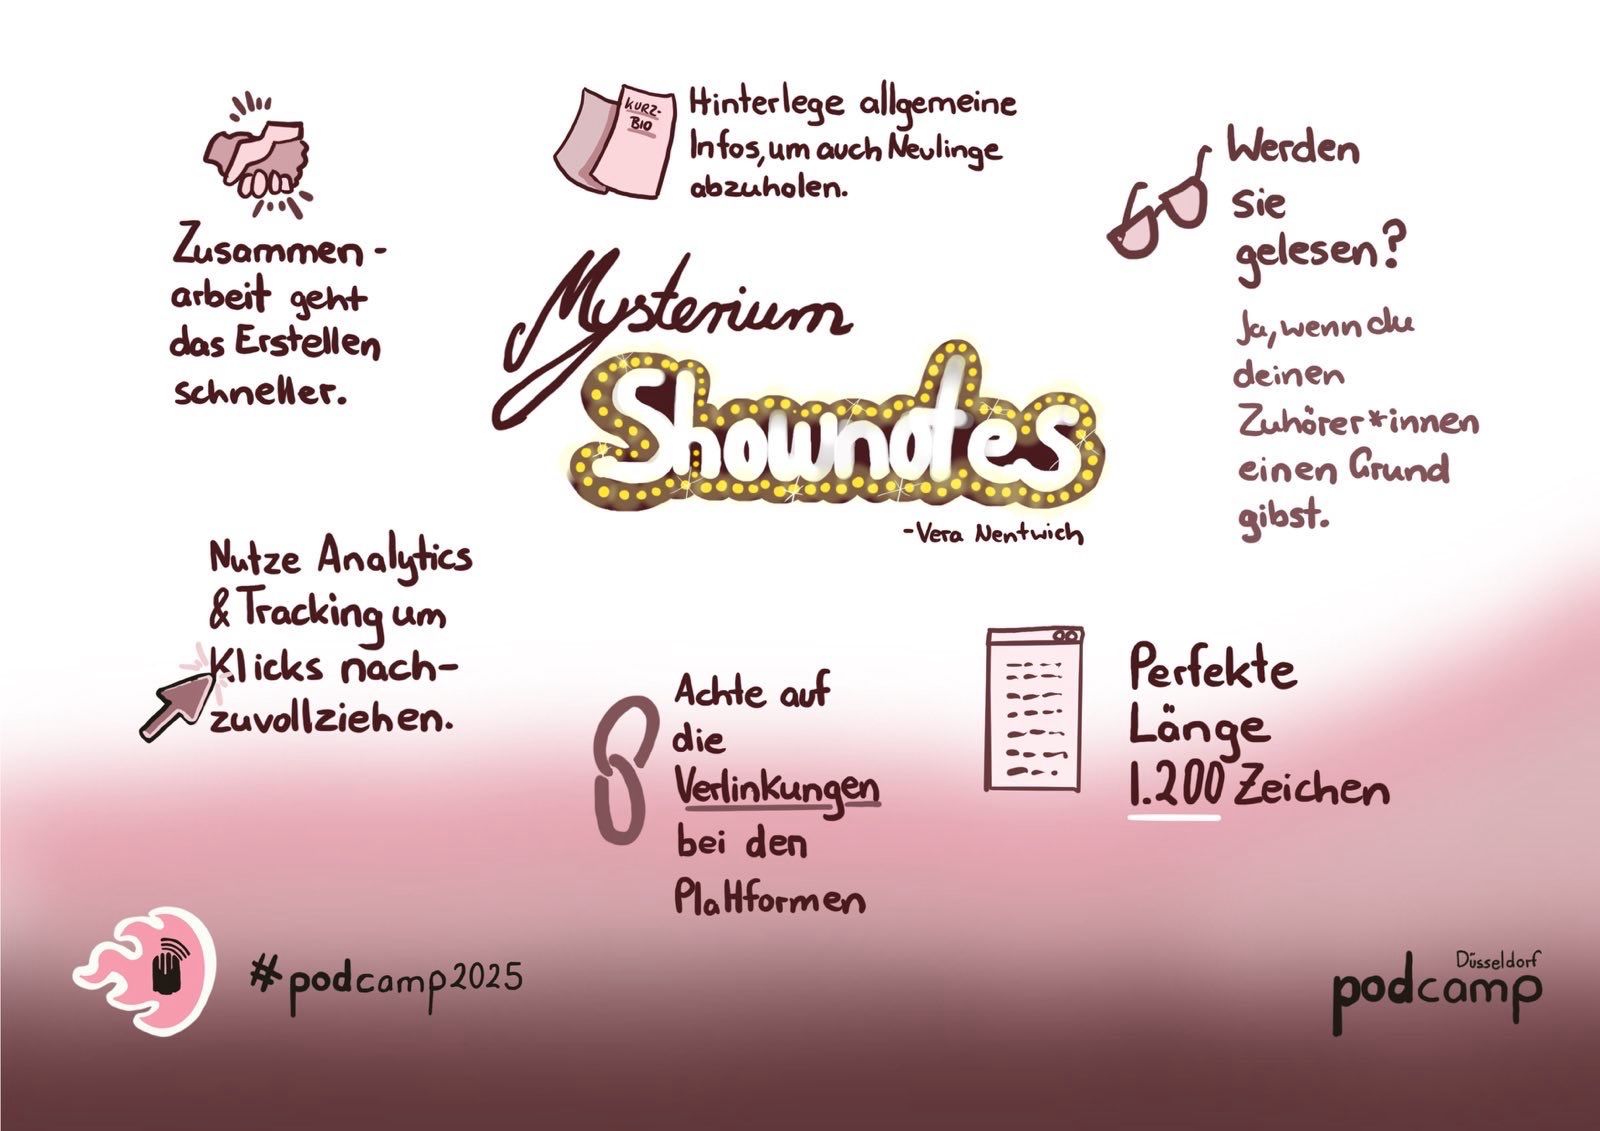 Zusammen-
arbeit geht
das Erstellen
schneller.
KURZ-
BIO
Hinterlege allgemeine
Infos, um auch Neulinge
abzuholen.
Werden
sie
gelesen?
Ja, wenn du
deinen
Zuhörer*innen
einen Grund
gibst.
Mysterium
Shownotes
-Vera Nentwich
Nutze Analytics
& Tracking um
Klicks nach-
zuvollziehen.
Achte auf
die
Verlinkungen
bei den
Plattformen
Perfekte
Länge
1.200 Zeichen
#podcamp2025
Düsseldorf
podcamp